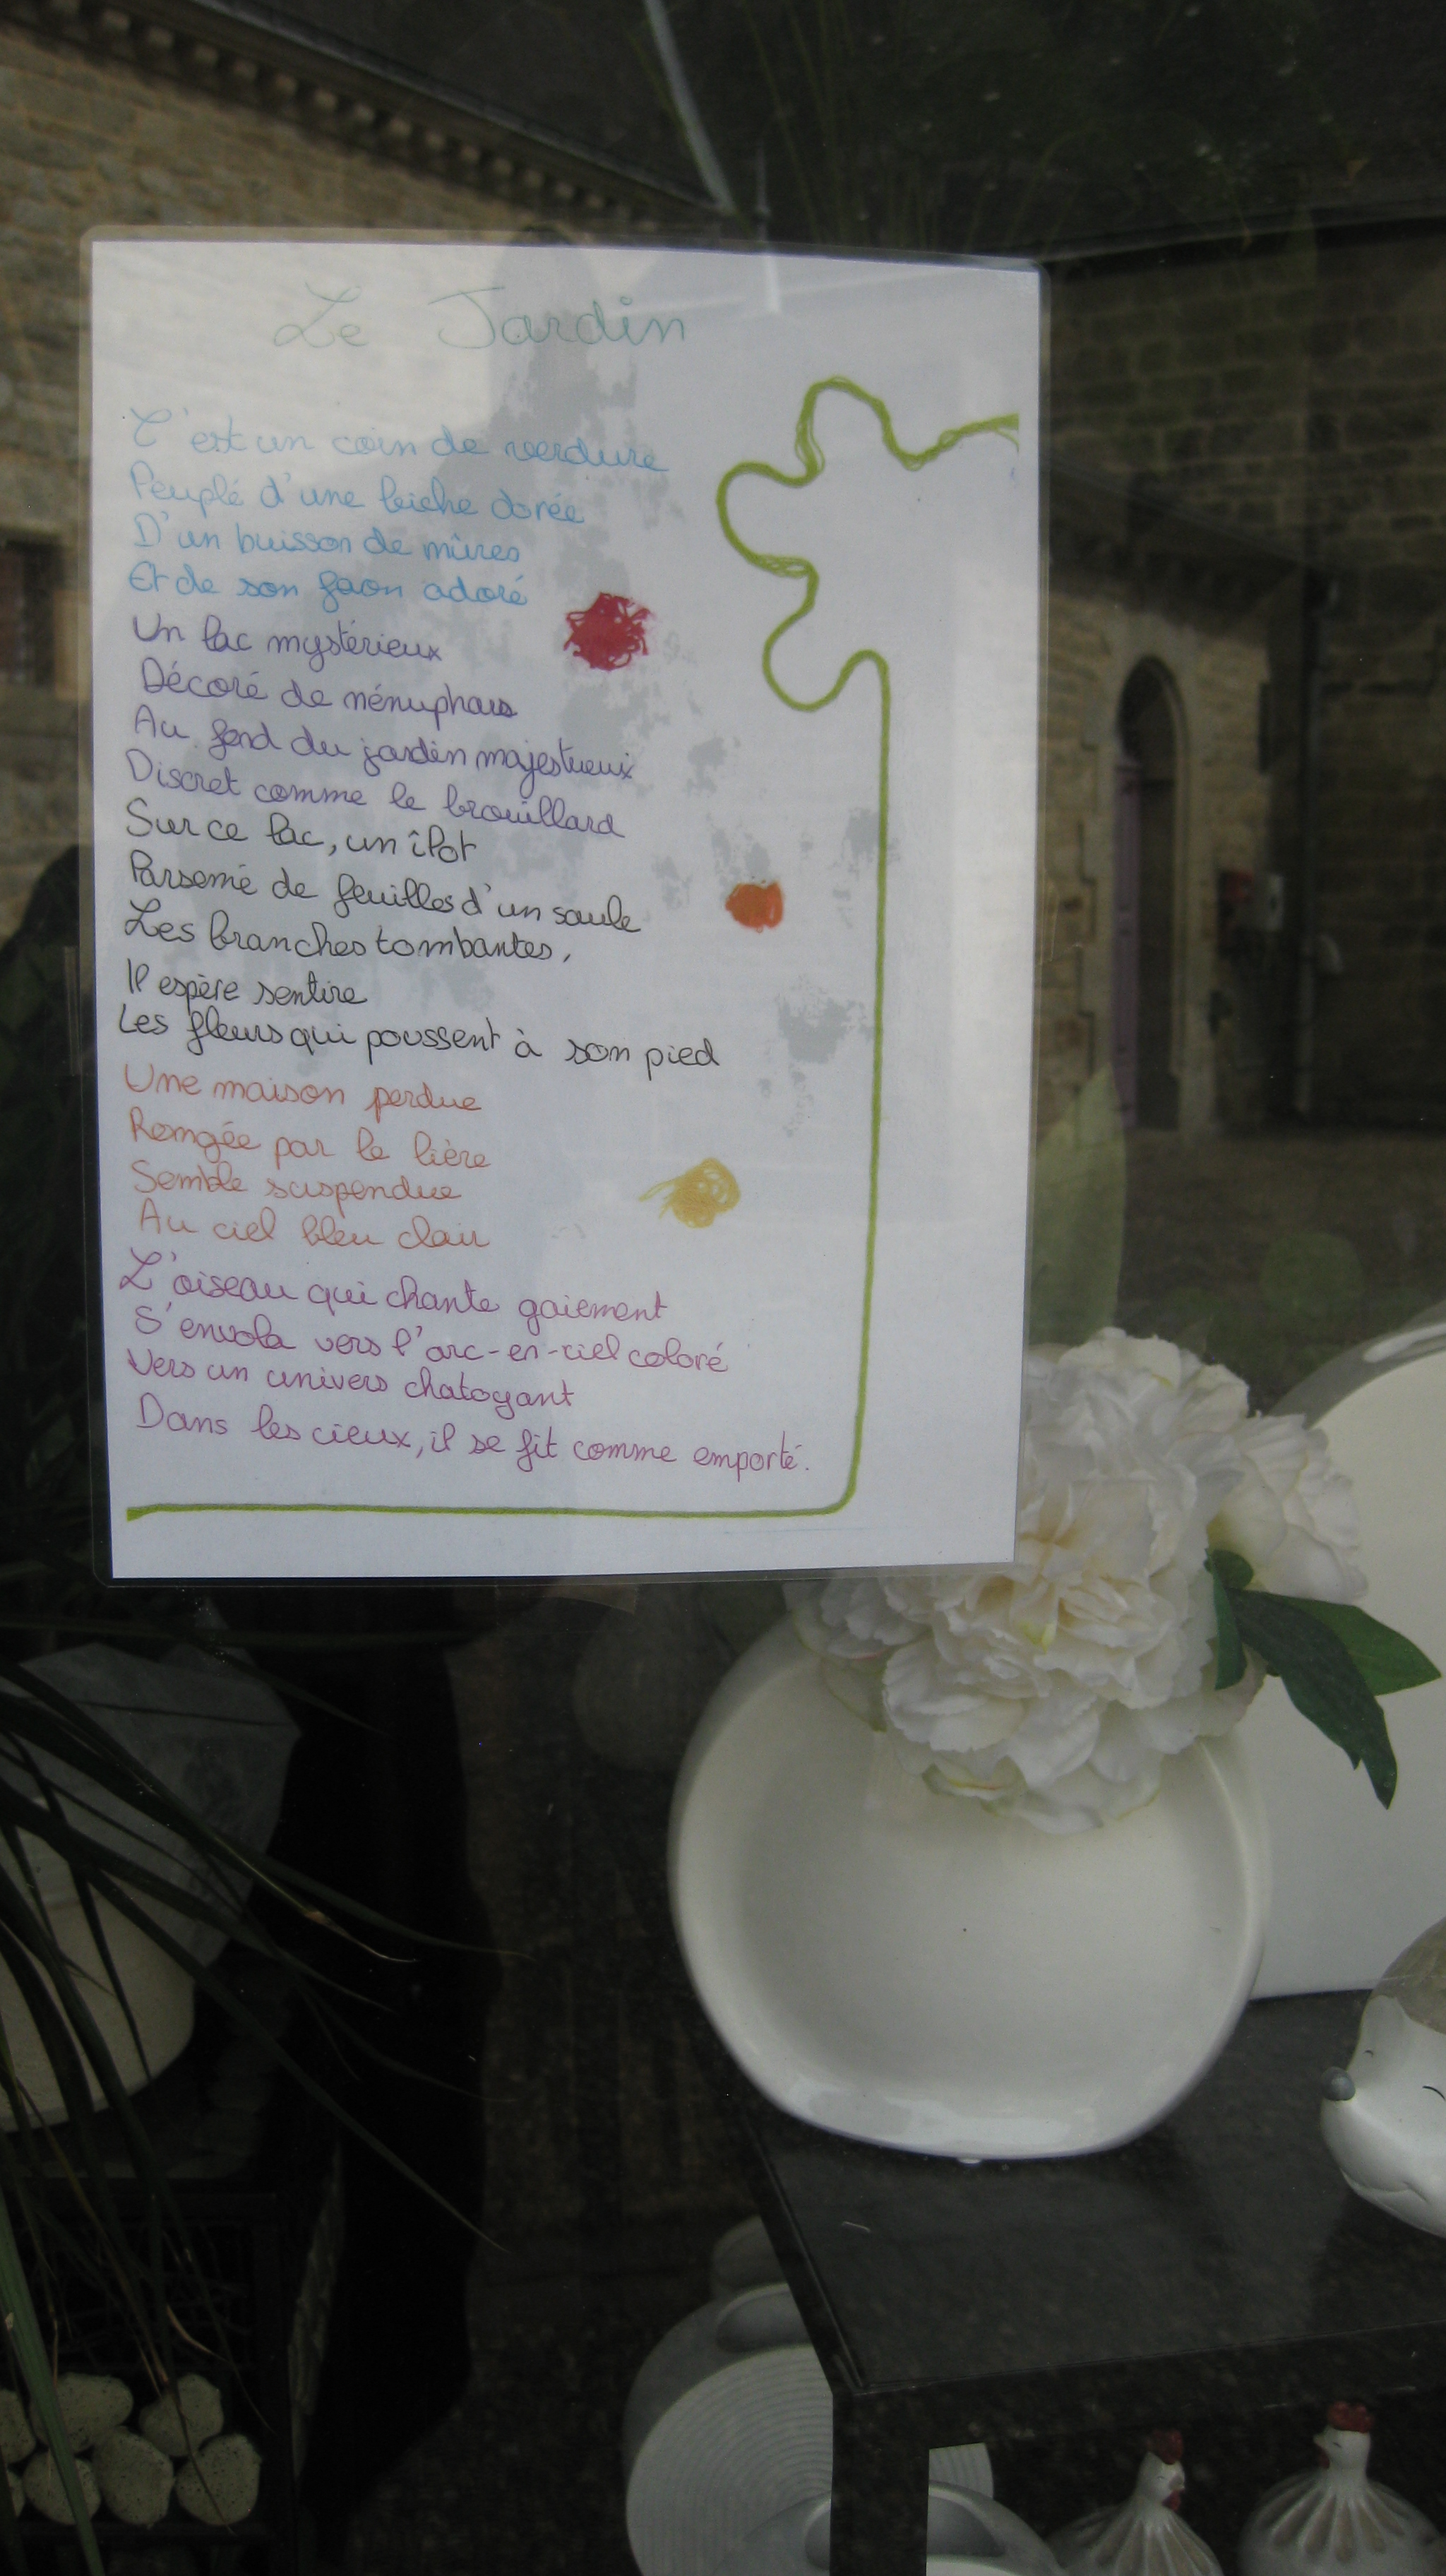 Le Jardin
C'est un coin de verdure
Peuplé d'une biche dorée
D'un buisson de mûres
Et de son faon adoré
Un lac mystérieux
Décoré de nénuphars
Au fond du jardin majestueux
Discret comme le brouillard
Sur ce lac, un îlot
Parsemé de feuilles d'un saule
Les branches tombantes,
Il espère sentire
Les fleurs qui poussent à son pied
Une maison perdue
Rongée par le lière
Semble suspendue
Au ciel bleu clair
L'oiseau qui chante gaiement
S'envola vers l'arc-en-ciel coloré
Vers un univers chatoyant
Dans les cieux, il se fit comme emporté.